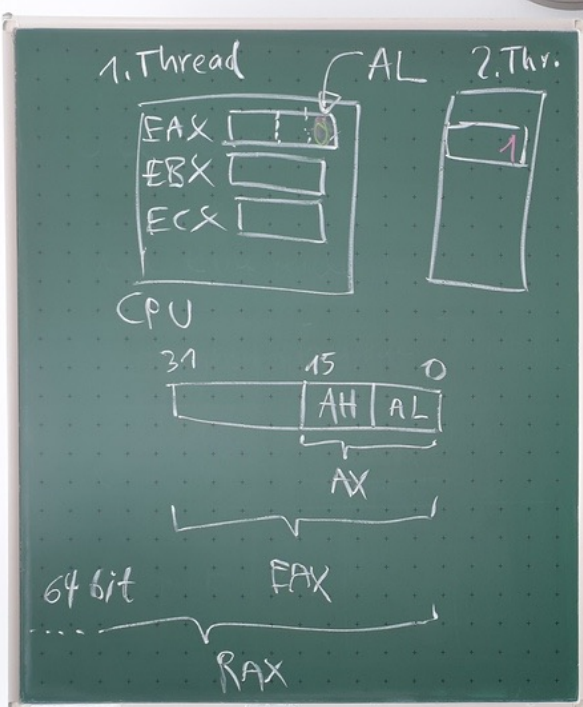 1. Thread AL 2. Thr.
EAX 0 1
EBX
ECX
CPU
31 15 0
AH AL
AX
EAX
64 bit
....
RAX